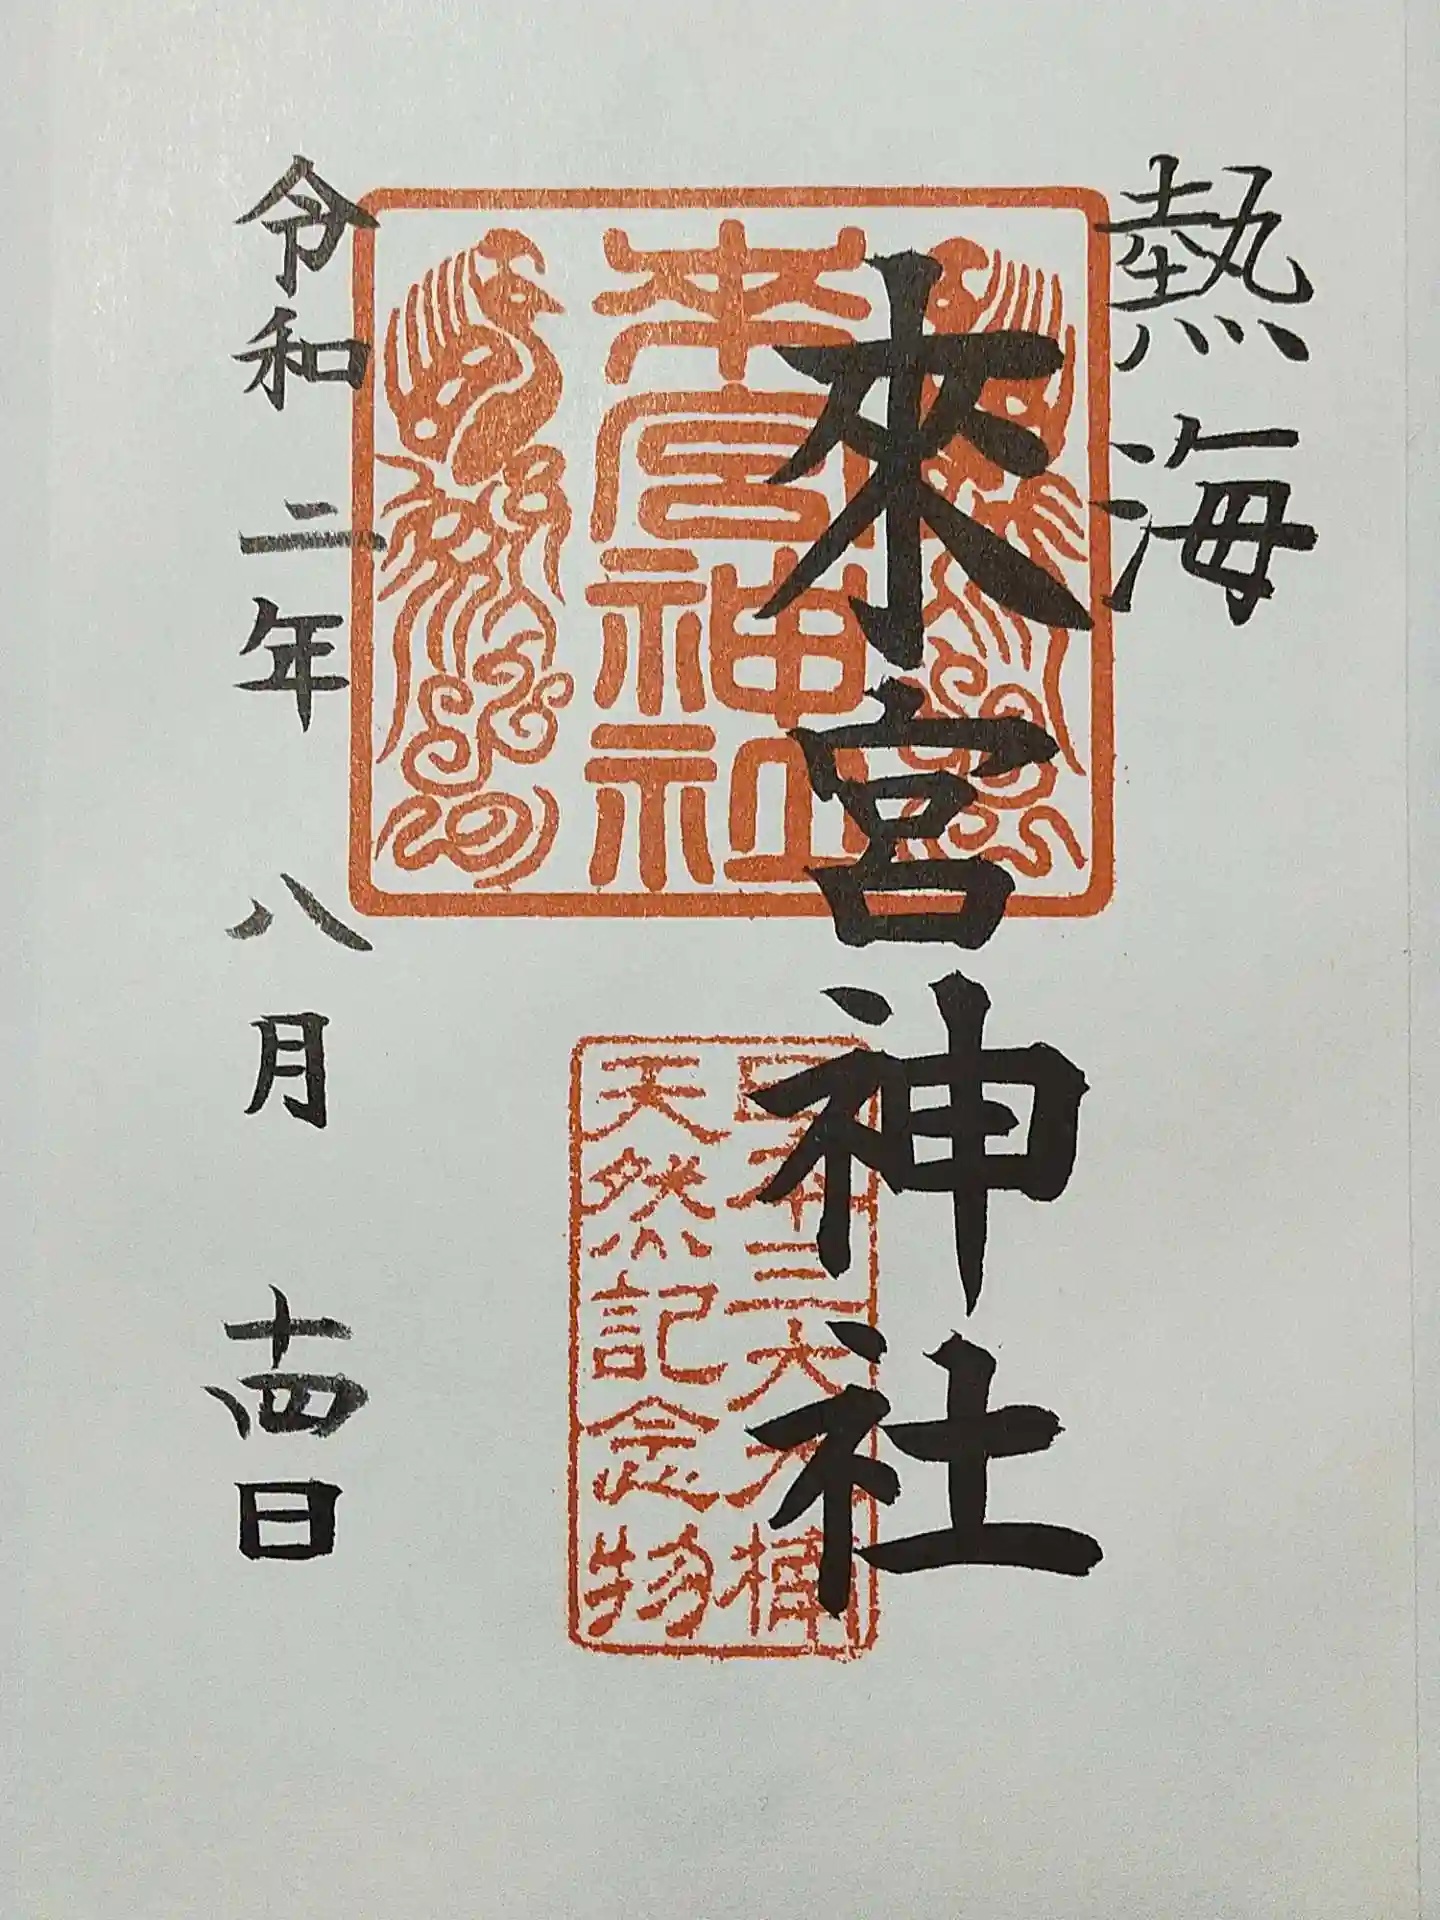 熱海
來宮神社
來宮神社
日本三大大楠
天然記念物
令和二年八月十四日